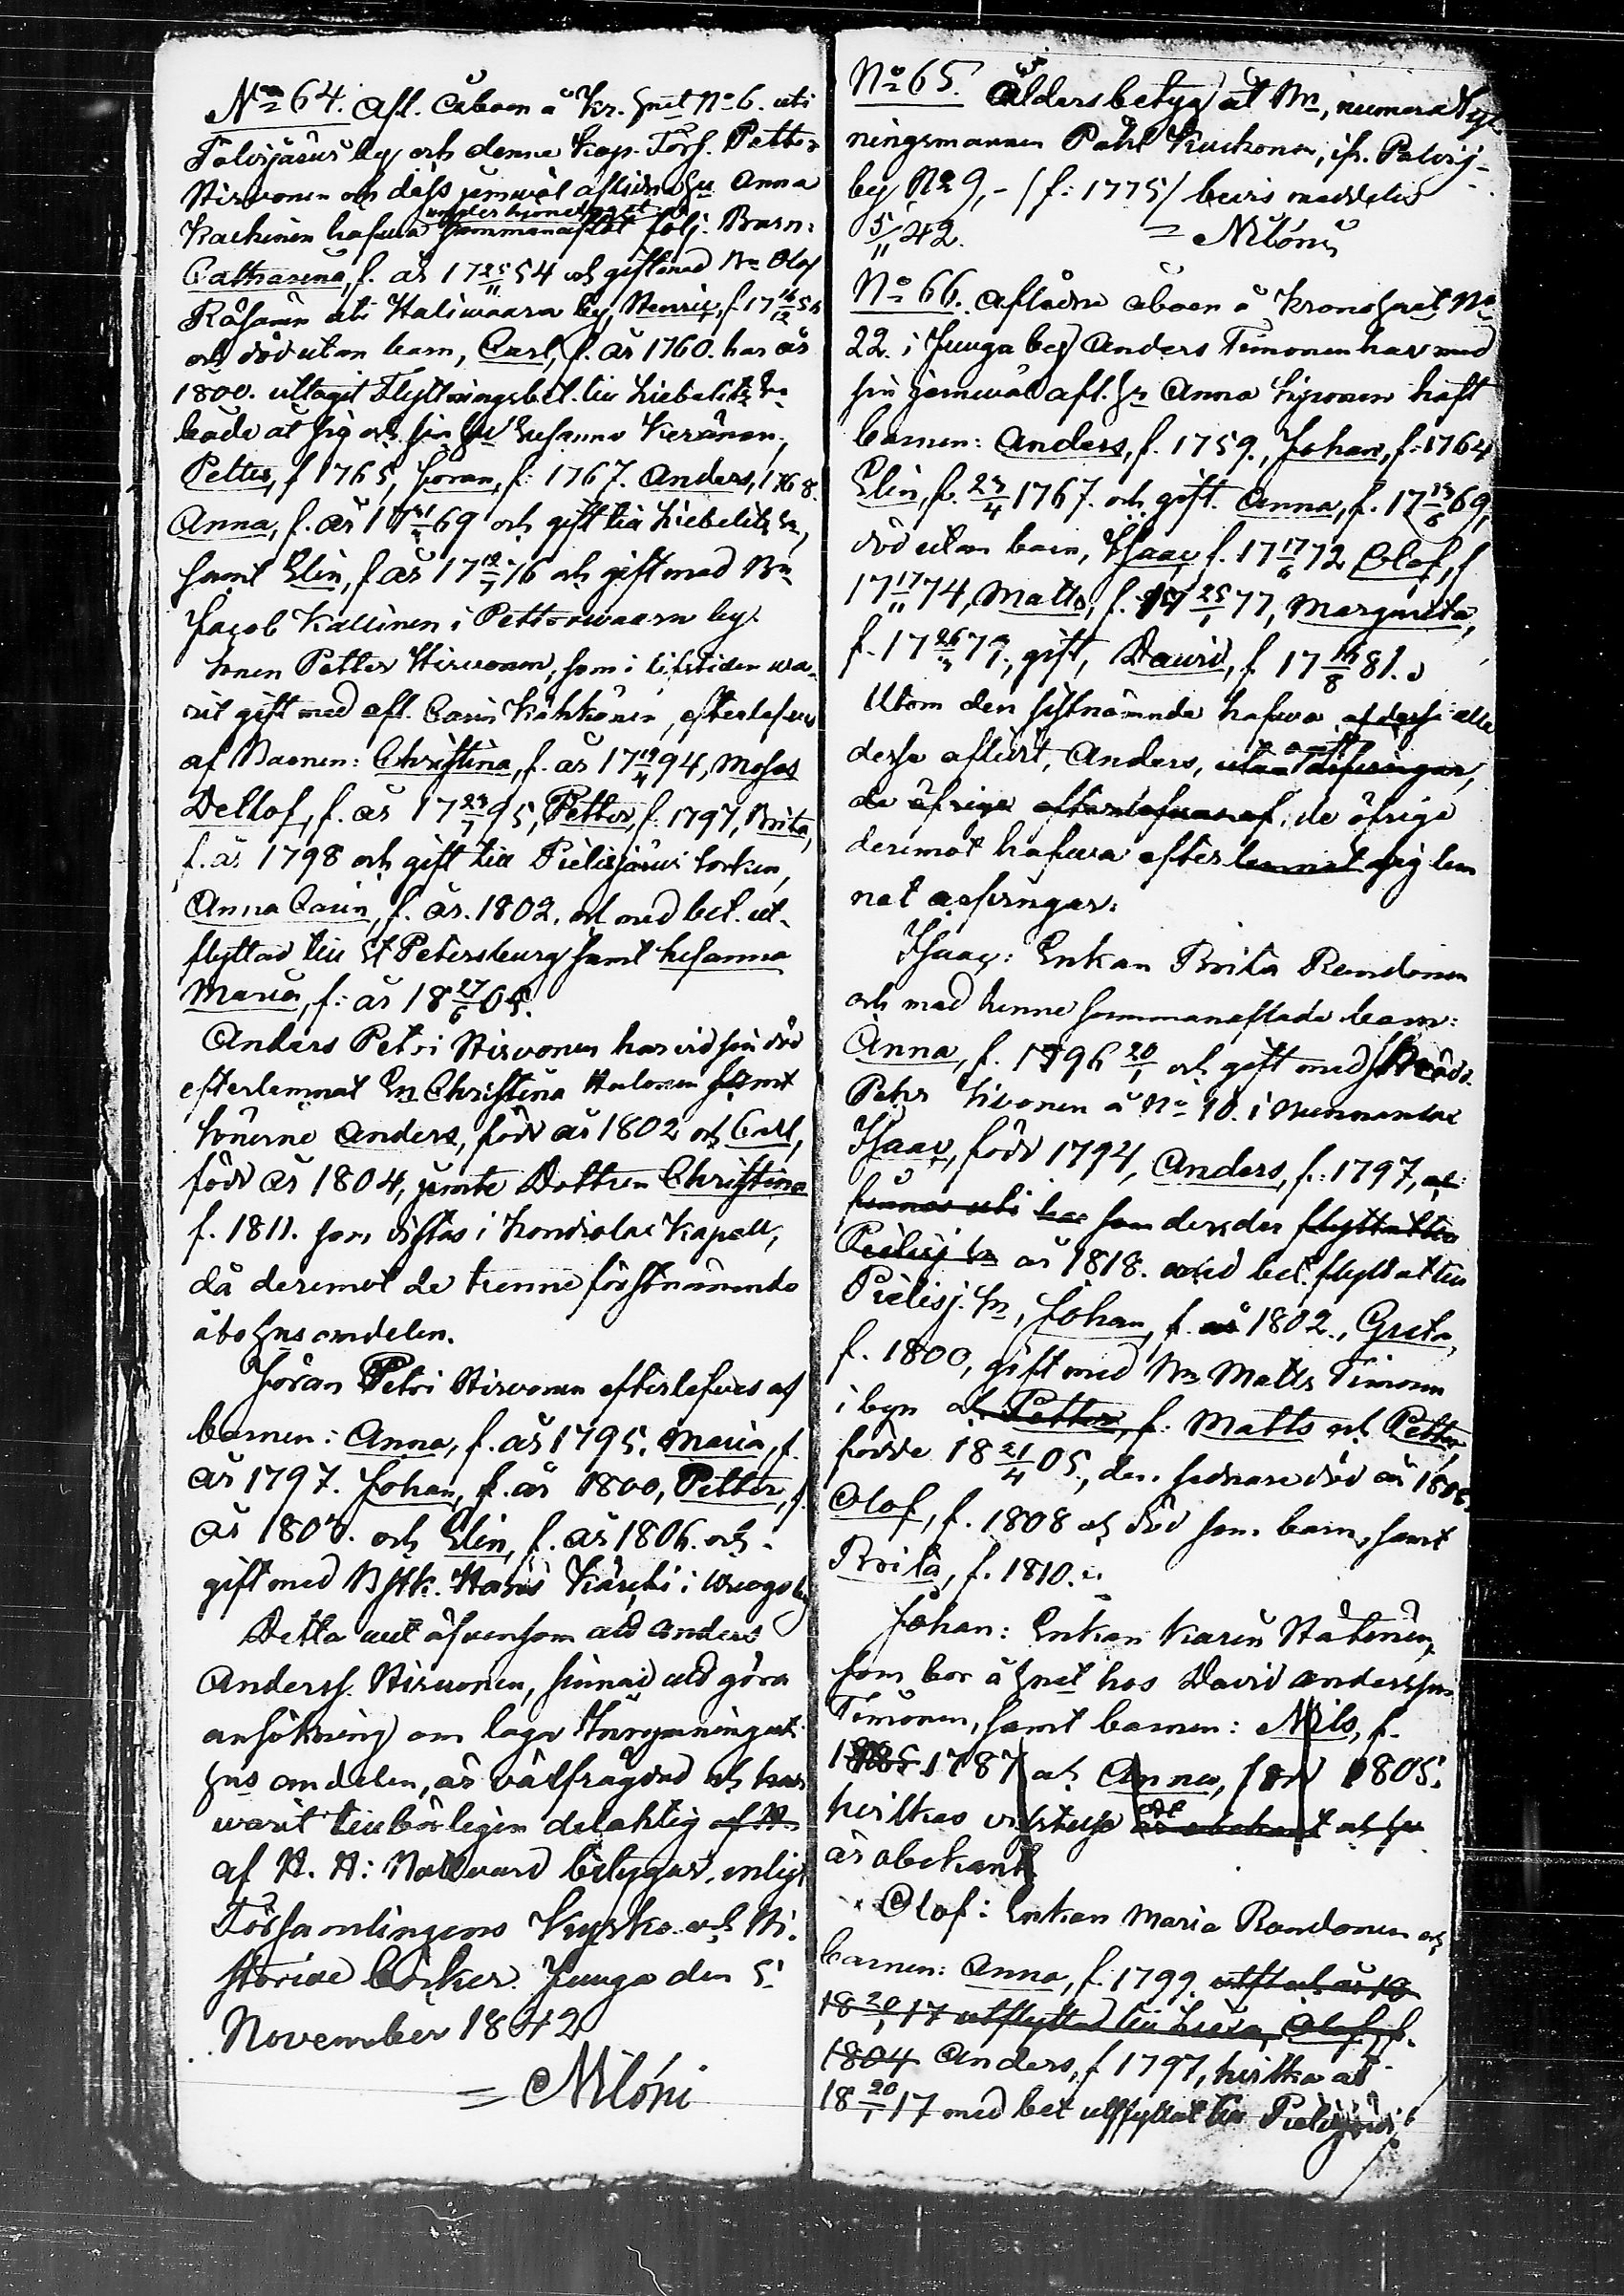 No 64. Afl. åboen å Kr. Hmt No 6. uti
Polvijärvi by och denne Kap. Förs. Petter
Hirvonen och dess jemwäl aflidna Hu Anna
Kackinen hafwa under hjonelaget sammanaflat följ. Barn:
Catharina, f. år 17 25/11 54 och gift med Bn Olof
Räsänen uti Haliwaara by, Henric, f. 17 16/12 5
och död utan barn, Carl, f. år 1760. har år
1800. uttagit Flyttningsbet. till Libelits Sn
både åt sig och sin Hu Susanna Keränen,
Petter, f 1765, Göran, f: 1767. Anders, 1768.
Anna, f. år 17 69 och gift till Libelits Sn,
samt Elin, f år 17 12/7 76 och gift med Bn
Jacob Kallinen i Petrowaara by.
Sonen Petter Hirvonen, som i lifstiden wa-
rit gift med afl. Carin Kähkönen, efterlefves
af Barnen: Christina, f. år 17 19/4 94, Moses
Detlof, f. år 17 23/7 95, Petter, f. 1797, Brita,
f. år 1798 och gift till Pielisjärvi socken,
Anna Carin, f. år. 1802. och med bet. ut-
flyttad till St Petersburg samt Susanna
Maria, f: år 18 27/6 05.
Anders Petri Hirvonen har vid sin död
efterlemnat En Christina Halonen samt
sönerne Anders, född år 1802 och Carl,
född år 1804, jemte Dottren Christina
f. 1811. som vistas i Kondiolax Kapell,
då deremot de tvenne förstnämnde
åbo Hns andelen.
Göran Petri Hirvonen efterlefves af
barnen: Anna, f. år 1795. Maria, f.
år 1797. Johan, f. år 1800, Petter, f.
år 1803. och Elin, f. år 1806. och
gift med Bstk. Hans Kärki i by
Detta allt äfvensom att Anders
Anderss. Hirvonen, sinnad att göra
ansökning om laga
Hns andelen, är välfrägdad och har
warit tillbörligen delaktig af H.
af H. H: Nattvard betygar, enligt
Församlingens Kyrko- och Hi-
storiae böcker. Juuga den 5.
November 1842
= Nilóni
No 65. Åldersbetyg åt Bn, numera
ningsmannen Påhl Kuckonen, ifr. Polvij-
by No 9, - / f: 1775/ bevis meddelts
5/11 42. = Nilóni
No 66. Aflidne åboen å Krono Hmt No
22. i Juuga by Anders Timonen har med
sin jemwäl afl. Hu Anna haft
barnen: Anders, f. 1759., Johan, f: 1764
Elin, f. 23/4 1767. och gift. Anna, f. 17 13/6 69,
död utan barn, Isaac f. 17 17/6 72 Olof, f
17 17/11 74, Matts, f. 17 25/1 77, Margareta,
f. 17 26/3 79., gift, David, f 17 16/8 81.
Utom den sistnämnde hafwa af desse alle
desse aflidit, Anders, ogift utan arfvingar,
de öfrige efterlefvas af, de öfrige
deremot hafwa efter lemnat sig lem
nat arfvingar:
Isaac: Enkan Brita Randonen
och med henne sammanaflade barn:
Anna, f. 1796 20/1 och gift med
Pehr Sivonen å No 10. i Nunnanlax
Isaac, född 1794, Anders, f: 1797, och
finnas uti har som derifrån flyttat till
Pielisj Sn år 1818. med bet. flyttat till
Pielisj. Sn, Johan, f. år 1802., Greta,
f. 1800, gift med Bn Matts Timonen
i byn och Petter, f. Matts och Petter,
födde 18 21/4 05., den sednare död år 1806.
Olof, f. 1808 och död som barn, samt
Brita, f. 1810.
Johan: Enkan Karin Hätinen,
som bor å Hmt hos David Andersson
Timonen, samt barnen: Nils, f.
1787 och Anna, född 1805.
hvilkas vistelse ort är obekant och hu
är obekant
Olof: Enkan Maria Randonen och
barnen: Anna, f. 1799. utflyttad år 18
18 20/1 17 utflyttad till Olof, f.
1804 Anders, f 1797, hvilka åt
18 20/1 17 med bet utflyttat till Pielisjärvi